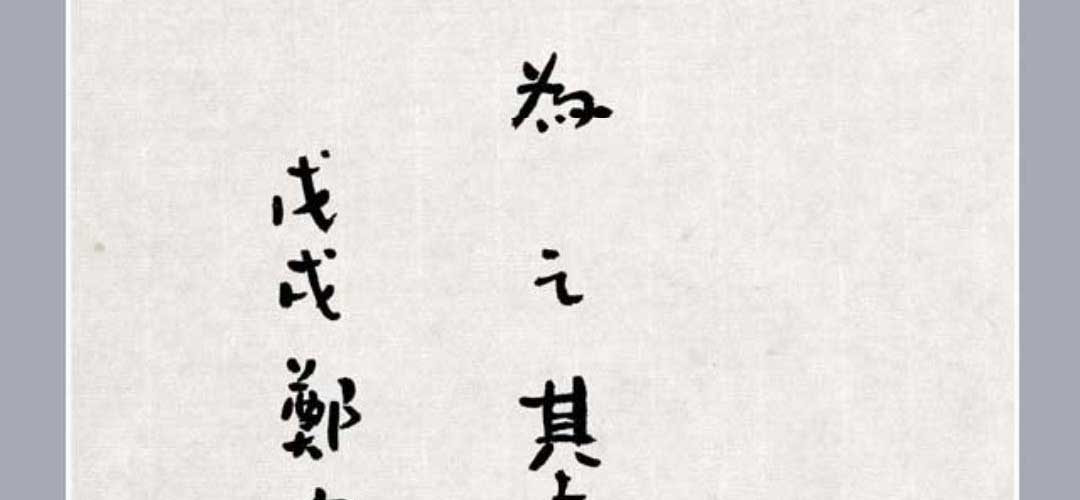 為之其
戊戌鄭